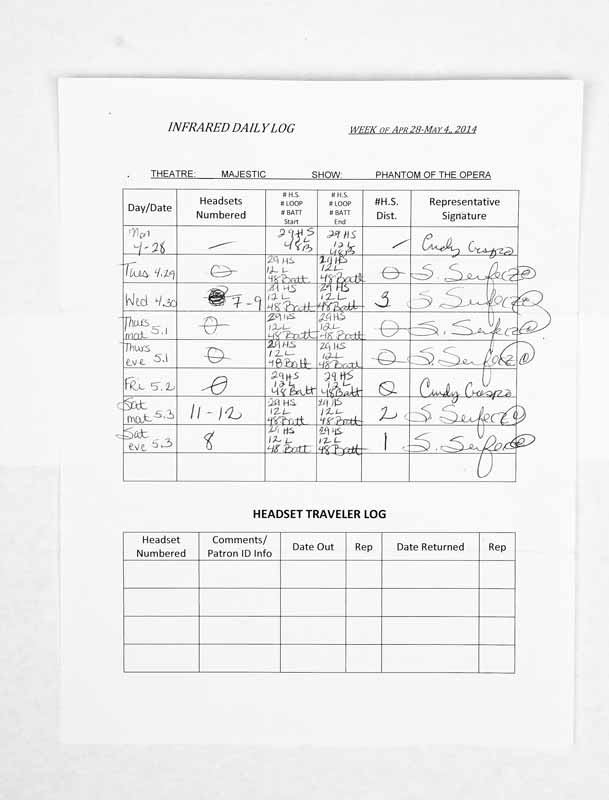 INFRARED DAILY LOG WEEK OF APR 28-MAY 4, 2014
THEATRE: MAJESTIC SHOW: PHANTOM OF THE OPERA
Day/Date Headsets Numbered # H.S. # LOOP # BATT Start # H.S. # LOOP # BATT End #H.S. Dist. Representative Signature
Mon 4-28 — 29 HS 12 L 48 B 29 HS 12 L 48 B — Cindy
Tues 4.29 0 29 HS 12 L 48 Batt 29 HS 12 L 48 Batt 0 S.
Wed 4.30 7-9 29 HS 12 L 48 Batt 29 HS 12 L 48 Batt 3 S.
Thurs mat 5.1 0 29 HS 12 L 48 Batt 29 HS 12 L 48 Batt 0 S.
Thurs eve 5.1 0 29 HS 12 L 48 Batt 29 HS 12 L 48 Batt 0 S.
Fri 5.2 0 29 HS 12 L 48 Batt 29 HS 12 L 48 Batt 0 Cindy
Sat mat 5.3 11-12 29 HS 12 L 48 Batt 29 HS 12 L 48 Batt 2 S.
Sat eve 5.3 8 29 HS 12 L 48 Batt 29 HS 12 L 48 Batt 1 S.
HEADSET TRAVELER LOG
Headset Numbered Comments/ Patron ID Info Date Out Rep Date Returned Rep